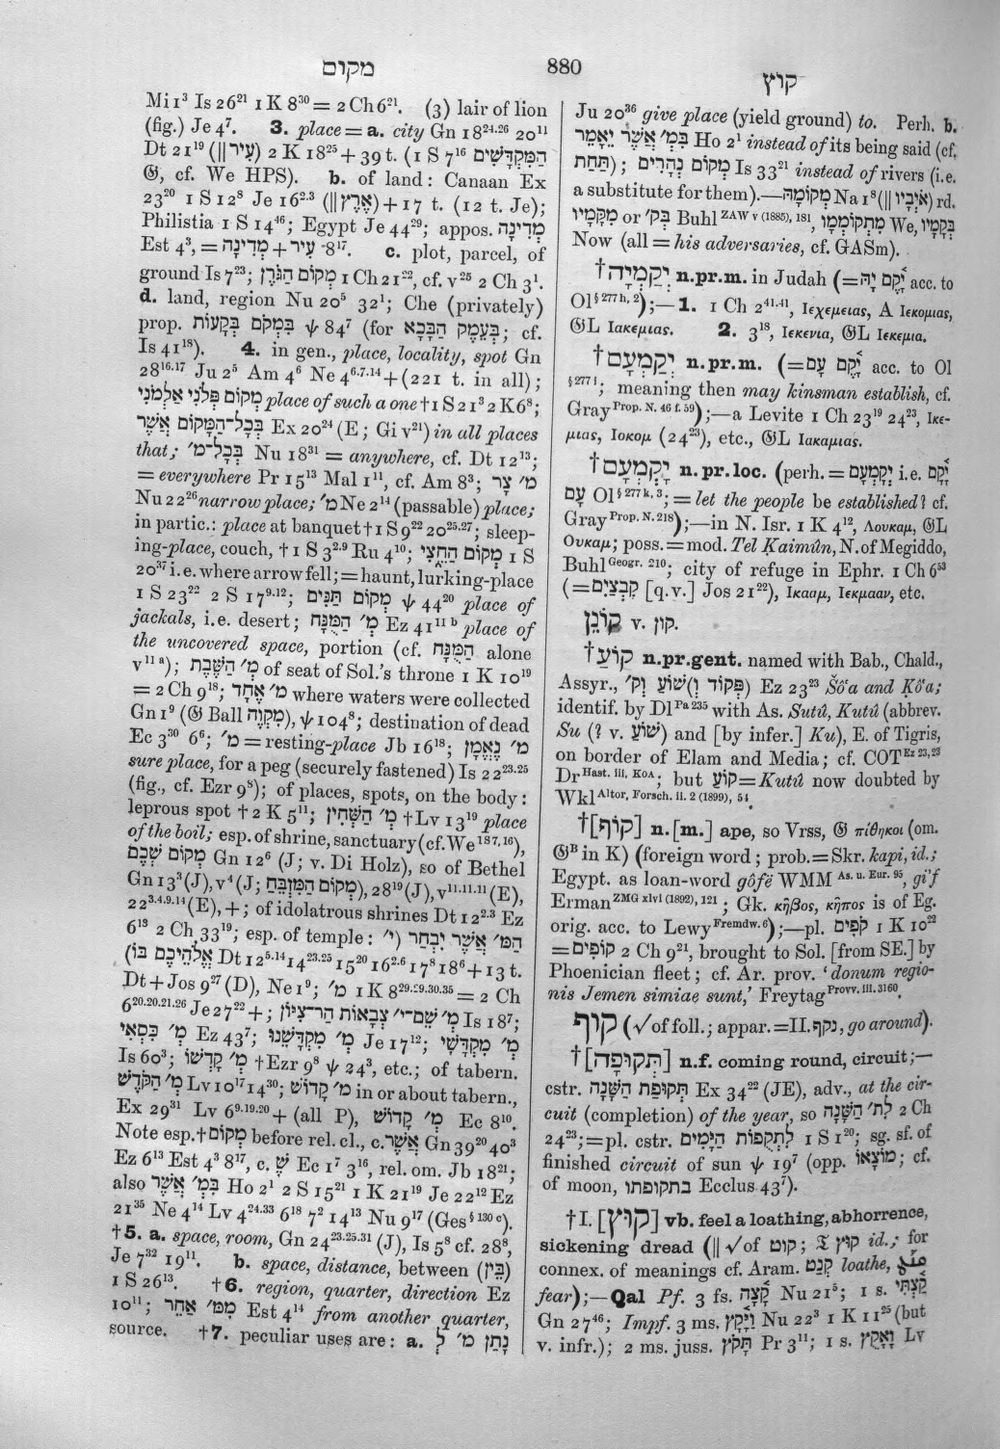 מקום
880
קוץ
Mi 1³ Is 26²¹ 1 K 8³⁰ = 2 Ch 6²¹. (3) lair of lion
(fig.) Je 4⁷. 3. place = a. city Gn 18²⁴·²⁶ 20¹¹
Dt 21¹⁹ (|| עִיר) 2 K 18²⁵ + 39 t. (1 S 7¹⁶ הַמִּקְדָּשִׁים
𝔊, cf. We HPS). b. of land : Canaan Ex
23²⁰ 1 S 12⁸ Je 16²·³ (|| אֶרֶץ) + 17 t. (12 t. Je);
Philistia 1 S 14⁴⁶; Egypt Je 44²⁹; appos. מְדִינָה
Est 4³, = עִיר + מְדִינָה 8¹⁷. c. plot, parcel, of
ground Is 7²³; מְקוֹם הַגֹּרֶן 1 Ch 21²², cf. v²⁵ 2 Ch 3¹.
d. land, region Nu 20⁵ 32¹; Che (privately)
prop. בִּמְקֹם בְּקָעוֹת ψ 84⁷ (for בְּעֵמֶק הַבָּכָא; cf.
Is 41¹⁸). 4. in gen., place, locality, spot Gn
28¹⁶·¹⁷ Ju 2⁵ Am 4⁶ Ne 4⁶·⁷·¹⁴ + (221 t. in all);
מְקוֹם פְּלֹנִי אַלְמֹנִי place of such a one † 1 S 21³ 2 K 6⁸;
בְּכָל־הַמָּקוֹם אֲשֶׁר Ex 20²⁴ (E; Gi v²¹) in all places
that; בְּכָל־מ׳ Nu 18³¹ = anywhere, cf. Dt 12¹³;
= everywhere Pr 15¹³ Mal 1¹¹, cf. Am 8³; מ׳ צָר
Nu 22²⁶ narrow place; מ׳ Ne 2¹⁴ (passable) place;
in partic.: place at banquet † 1 S 9²² 20²⁵·²⁷; sleep-
ing-place, couch, † 1 S 3²·⁹ Ru 4¹⁰; מְקוֹם הַחֵצִי 1 S
20³⁷ i.e. where arrow fell; = haunt, lurking-place
1 S 23²² 2 S 17⁹·¹²; מְקוֹם תַּנִּים ψ 44²⁰ place of
jackals, i.e. desert; מְ׳ הַמֻּנָּח Ez 41¹¹ᵇ place of
the uncovered space, portion (cf. הַמֻּנָּח alone
v¹¹ᵃ); מְ׳ הַשֶּׁבֶת of seat of Sol.'s throne 1 K 10¹⁹
= 2 Ch 9¹⁸; מ׳ אֶחָד where waters were collected
Gn 1⁹ (𝔊 Ball מִקְוֶה), ψ 104⁸; destination of dead
Ec 3²⁰ 6⁶; מ׳ = resting-place Jb 16¹⁸; מ׳ נֶאֱמָן
sure place, for a peg (securely fastened) Is 22²³·²⁵
(fig., cf. Ezr 9⁸); of places, spots, on the body:
leprous spot † 2 K 5¹¹; מְ׳ הַשְּׁחִין † Lv 13¹⁹ place
of the boil; esp. of shrine, sanctuary (cf. We¹⁸⁷·¹⁶),
מְקוֹם שְׁכֶם Gn 12⁶ (J; v. Di Holz), so of Bethel
Gn 13³ (J), v⁴ (J; מְקוֹם הַמִּזְבֵּחַ), 28¹⁹ (J), v¹¹·¹¹·¹¹ (E),
22³·⁴·⁹·¹⁴ (E), +; of idolatrous shrines Dt 12²·³ Ez
6¹³ 2 Ch 33¹⁹; esp. of temple: הַמּ׳ אֲשֶׁר יִבְחַר (י׳
אֱלֹהֵיכֶם בּוֹ) Dt 12⁵·¹⁴ 14²³·²⁵ 15²⁰ 16²·⁶ 17⁸ 18⁶ + 13 t.
Dt + Jos 9²⁷ (D), Ne 1⁹; מ׳ 1 K 8²⁹·²⁹·³⁰·³⁵ = 2 Ch
6²⁰·²⁰·²¹·²⁶ Je 27²² +; מְ׳ שֵׁם־י׳ צְבָאוֹת הַר־צִיּוֹן Is 18⁷;
מְ׳ כִּסְאִי Ez 43⁷; מְ׳ מִקְדָּשֵׁנוּ Je 17¹²; מְ׳ מִקְדָּשִׁי
Is 60³; מְ׳ קָדְשׁוֹ † Ezr 9⁸ ψ 24³, etc.; of tabern.
מְ׳ הַקֹּדֶשׁ Lv 10¹⁷ 14³⁰; מ׳ קָדוֹשׁ in or about tabern.,
Ex 29³¹ Lv 6⁹·¹⁹·²⁰ + (all P), מְ׳ קָדוֹשׁ Ec 8¹⁰.
Note esp. † מְקוֹם before rel. cl., c. אֲשֶׁר Gn 39²⁰ 40³
Ez 6¹³ Est 4³ 8¹⁷, c. שֶׁ Ec 1⁷ 3¹⁶, rel. om. Jb 18²¹;
also בִּמְ׳ אֲשֶׁר Ho 2¹ 2 S 15²¹ 1 K 21¹⁹ Je 22¹² Ez
21³⁵ Ne 4¹⁴ Lv 4²⁴·³³ 6¹⁸ 7² 14¹³ Nu 9¹⁷ (Ges§¹³⁰ᶜ).
†5. a. space, room, Gn 24²³·²⁵·³¹ (J), Is 5⁸ cf. 28⁸,
Je 7³² 19¹¹. b. space, distance, between (בֵּין)
1 S 26¹³. †6. region, quarter, direction Ez
10¹¹; מִמּ׳ אַחֵר Est 4¹⁴ from another quarter,
source. †7. peculiar uses are: a. נָתַן מ׳ לְ
Ju 20³⁶ give place (yield ground) to. Perh. b.
בִּמְ׳ אֲשֶׁר יֵאָמֵר Ho 2¹ instead of its being said (cf.
תַּחַת); מְקוֹם נְהָרִים Is 33²¹ instead of rivers (i.e.
a substitute for them).—מְקוֹמָהּ Na 1⁸ (|| אֹיְבָיו) rd.
מִקָּמָיו or בְּק׳ Buhl ZAW v (1885), 181, מִתְקוֹמְמָו We, בְּקָמָיו
Now (all = his adversaries, cf. GASm).
†יְקַמְיָה n.pr.m. in Judah (= יָקֵם יָהּ acc. to
Ol§ ²⁷⁷ʰ, ²);—1. 1 Ch 2⁴¹·⁴¹, Ιεχεμειας, A Ιεκομιας,
𝔊L Ιακεμιας. 2. 3¹⁸, Ιεκενια, 𝔊L Ιεκεμια.
†יְקַמְעָם n.pr.m. (= יָקֵם עָם acc. to Ol
§ 277 f; meaning then may kinsman establish, cf.
Gray Prop. N. 46 f. 59);—a Levite 1 Ch 23¹⁹ 24²³, Ικε-
μιας, Ιοκομ (24²³), etc., 𝔊L Ιακαμιας.
†יָקְמְעָם n.pr.loc. (perh. = יָקְמְעָם i.e. יָקֵם
עָם Ol§ ²⁷⁷ᵏ, ³; = let the people be established? cf.
Gray Prop. N. 218);—in N. Isr. 1 K 4¹², Λουκαμ, 𝔊L
Ουκαμ; poss. = mod. Tel Ḳaimûn, N. of Megiddo,
Buhl Geogr. 210; city of refuge in Ephr. 1 Ch 6⁵³
(= קִבְצַיִם [q.v.] Jos 21²²), Ικααμ, Ιεκμααν, etc.
קוֹנֵן v. קין.
†קוֹעַ n.pr.gent. named with Bab., Chald.,
Assyr., פְּקוֹד וְ)שׁוֹעַ וְק׳) Ez 23²³ Šôʻa and Ḳôʻa;
identif. by Dl Pa 235 with As. Sutû, Kutû (abbrev.
Su (? v. שׁוֹעַ) and [by infer.] Ku), E. of Tigris,
on border of Elam and Media; cf. COT Ez 23, 23
Dr Hast. iii, KOA; but קוֹעַ = Kutû now doubted by
Wkl Altor. Forsch. ii. 2 (1899), 54.
†[קוֹף] n.[m.] ape, so Vrss, 𝔊 πίθηκοι (om.
𝔊ᴮ in K) (foreign word; prob. = Skr. kapi, id.;
Egypt. as loan-word gôfë WMM As. u. Eur. 95, gi'f
Erman ZMG xlvi (1892), 121; Gk. κῆβος, κῆπος is of Eg.
orig. acc. to Lewy Fremdw. 6);—pl. קֹפִים 1 K 10²²
= קוֹפִים 2 Ch 9²¹, brought to Sol. [from SE.] by
Phoenician fleet; cf. Ar. prov. ‘donum regio-
nis Jemen simiae sunt,’ Freytag Provv. iii. 3160.
קוף (√ of foll.; appar. = II. נקף, go around).
†[תְּקוּפָה] n.f. coming round, circuit;—
cstr. תְּקוּפַת הַשָּׁנָה Ex 34²² (JE), adv., at the cir-
cuit (completion) of the year, so לִת׳ הַשָּׁנָה 2 Ch
24²³; = pl. cstr. לִתְקֻפוֹת הַיָּמִים 1 S 1²⁰; sg. sf. of
finished circuit of sun ψ 19⁷ (opp. מוֹצָאוֹ; cf.
of moon, בתקופתו Ecclus 43⁷).
†I. [קוּץ] vb. feel a loathing, abhorrence,
sickening dread (|| √ of קוט; 𝔗 קוּץ id.; for
connex. of meanings cf. Aram. קְנַט loathe,
fear);—Qal Pf. 3 fs. קָצָה Nu 21⁵; 1 s. קַצְתִּי
Gn 27⁴⁶; Impf. 3 ms. וַיָּקָץ Nu 22³ 1 K 11²⁵ (but
v. infr.); 2 ms. juss. תָּקֹץ Pr 3¹¹; 1 s. וָאָקֻץ Lv